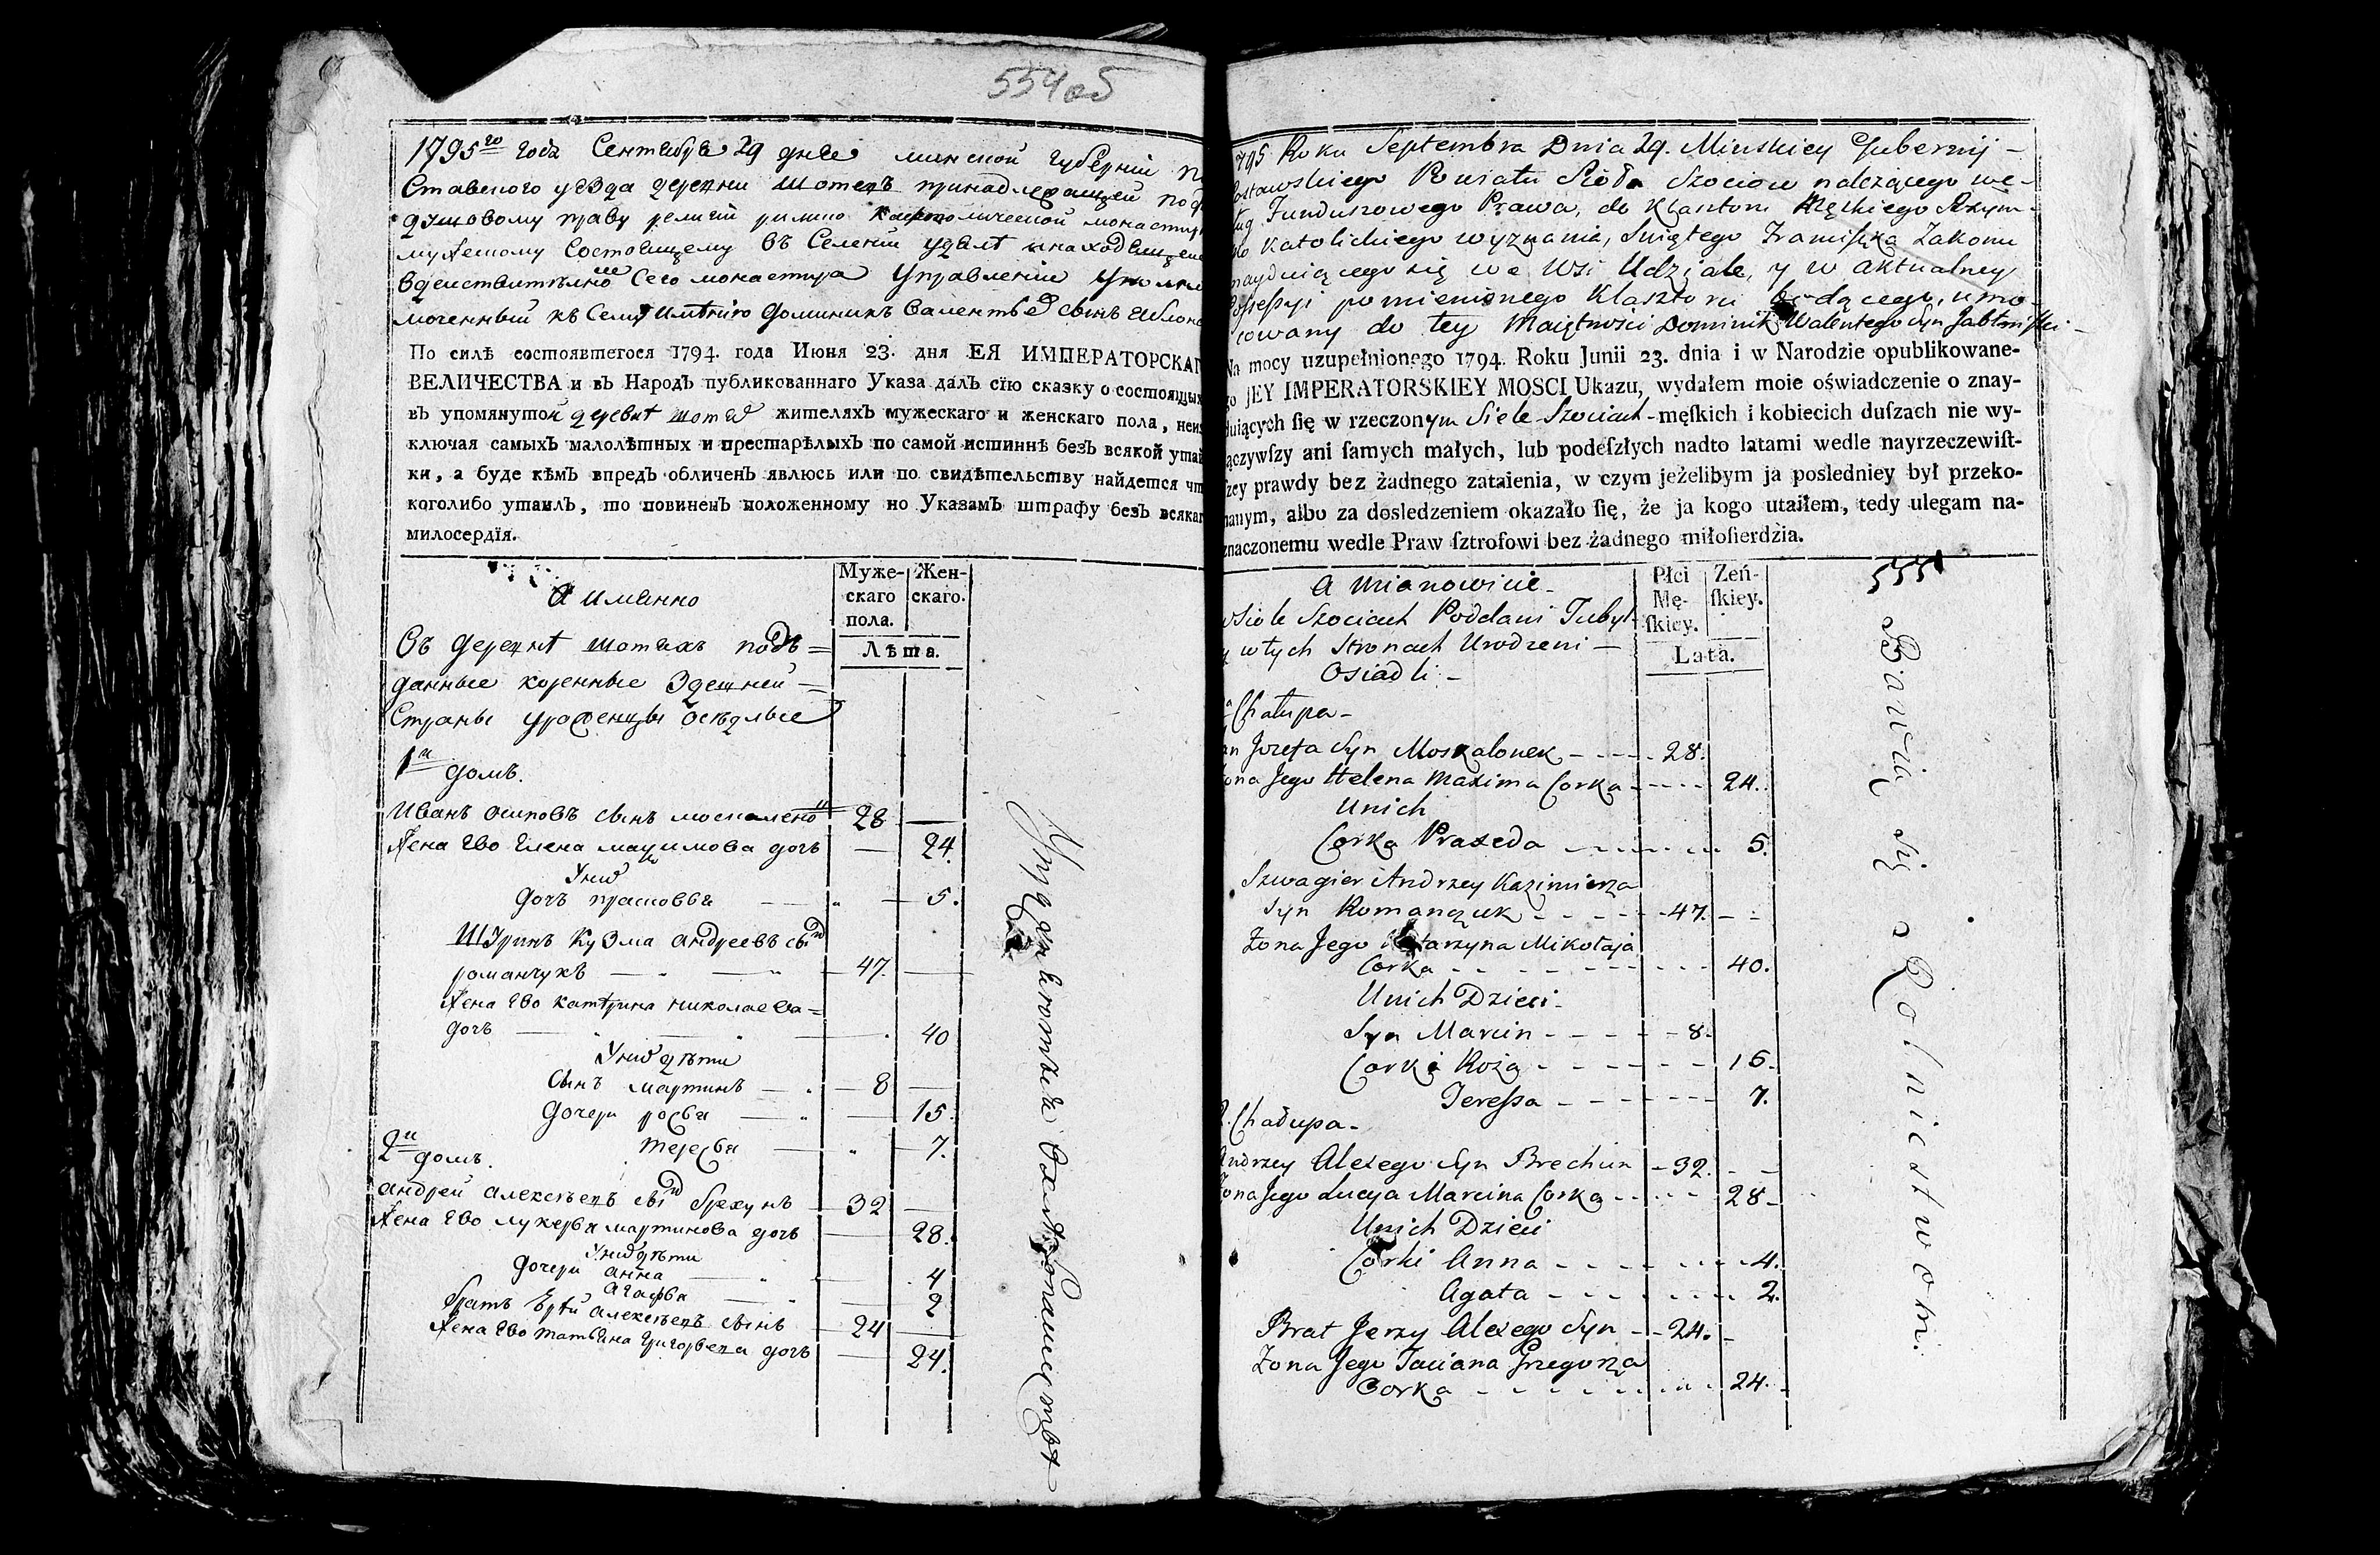 554 об
1795го года Сентября 29 дня минской губерніи
Ставского уезда деревни шотевъ принадлежащей
душовому праву религіи римско католической
мужескому Состоящему въ Селеніи уделѣ
вдействительно Сего монастыря Управленіи
моченный къ Сему имѣнию доминикъ Валентьевъ сынъ
По силѣ состоявшегося 1794. года Июня 23. дня ЕЯ ИМПЕРАТОРСКАГ
ВЕЛИЧЕСТВА и въ НародЪ публикованнаго Указа далЪ сїю сказку о состоящих
въ упомянутой деревнѣ шотах жителяхЪ мужескаго и женскаго пола, неиз
ключая самыхЪ малолѣтных и престарѣлыхЪ по самой истиннѣ безЪ всякой утай
ки, а буде кѣмЪ впредЪ обличенЪ явлюсь или по свидѣтельству найдется чт
коголибо утаилЪ, то повиненЪ положенному по УказамЪ штрафу безЪ всякаг
милосердїя.
А именно
Муже-
скаго
пола.
Жен-
скаго.
Лѣта.
Въ деревнѣ шотахъ подъ=
данные коренные Здешней=
Страны уроженцы оседлые
1й домъ.
Иванъ осиповъ сынъ москаленоⷦ 28 —
Жена Ево Елена мацимова дочь — 24.
Униⷯ
дочъ прасковья — 5.
Шуринъ Кузма андреевъ сыⷩ
романчукъ — 47. —
Жена Ево катерина николаева=
дочь — 40
Униⷯ дѣти
Сынъ мартинъ — 8 —
Дочери розвя — 15.
Тересья — 7.
2й домъ.
андрей алексѣевъ сыⷩ брехунъ 32 —
Жена Ево лукерья мартинова дочь — 28.
Униⷯ дѣти
дочери анна — 4
агафья — 2
братъ Ерѣй алексѣевъ сынъ 24 —
Жена Ево татьяна григорьева дочь — 24.
795 Roku Septembra Dnia 29. Minskiey Gubernij –
ostawskiego Powiatu Sioła Szociow należącego we-
ług Funduszowego Prawa, do Klasztoru Męskiego Rzym-
ko Katolickiego wyznania, Swiętego Franciszka Zakonu
nayduiącego się we Wsi Udziale, y w aktualney
Possessyi pomienionego Klasztoru będącego, umo-
cowany do tey Maiętnosci Dominik Walentego Syn Jabłoński –
Na mocy uzupełnionego 1794. Roku Junii 23. dnia i w Narodzie opublikowane-
go JEY IMPERATORSKIEY MOSCI Ukazu, wydałem moie oświadczenie o znay-
duiących ſię w rzeczonym Siele Szociach-męſkich i kobiecich duſzach nie wy-
ączywſzy ani ſamych małych, lub podeſzłych nadto latami wedle nayrzeczewiſt-
ſzey prawdy bez żadnego zataienia, w czym jeżelibym ja posledniey był przeko-
nanym, albo za dosledzeniem okazało ſię, że ja kogo utaiłem, tedy ulegam na-
znaczonemu wedle Praw ſztrofowi bez żadnego miłoſierdzia.
A mianowicie
Płci
Mę-
ſkiey.
Zeń-
ſkiey.
Lata.
wsiole Szociach Poddani Tubyl-
y wtych Stronach Urodzeni –
Osiadli –
Chałupa –
an Jozefa Syn Moskalonek - - - - 28.
ona Jego Helena Maxima Corka - - - - 24.
Unich
Corka Praxeda - - - - 5.
Szwagier Andrzey Kazimierza
Syn Romanczuk - - - - 47. - -
Zona Jego Katarzyna Mikołaja
Corka - - - - 40.
Unich Dzieci –
Syn Marcin - - - - 8.
Corki Roża - - - - 15.
Teressa - - - - 7.
2. Chałupa –
Andrzey Alexego Syn Brechun - 32. - -
Zona Jego Lucya Marcina Corka - - - - 28 -
Unich Dzieci
Corki Anna - - - - 4.
Agata - - - - 2.
Brat Jerzy Alexego Syn - - 24. -
Zona Jego Taciana Grzegorza
Corka - - - - 24. -
Упражняются Хлебопашеством
555
Bawią się Rolnictwom.